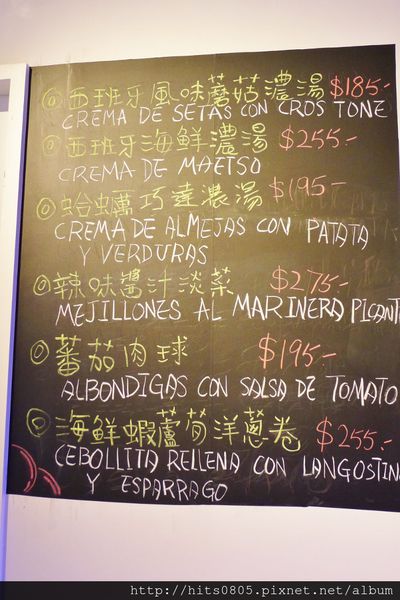 ◎西班牙風味蘑菇濃湯 $185-
CREMA DE SETAS CON CROS TONE
◎西班牙海鮮濃湯 $255-
CREMA DE MAETSO
◎蛤蠣巧達濃湯 $195-
CREMA DE ALMEJAS CON PATATA
Y VERDURAS
◎辣味醬汁淡菜 $275-
MEJILLONES AL MARINERA PICANT
◎蕃茄肉球 $195-
ALBONDIGAS CON SALSA DE TOMATO
◎海鮮蝦蘆筍洋蔥卷 $255-
CEBOLLITA RELLENA CON LANGOSTIN
Y ESPARRAGO
http://hits0805.pixnet.net/album